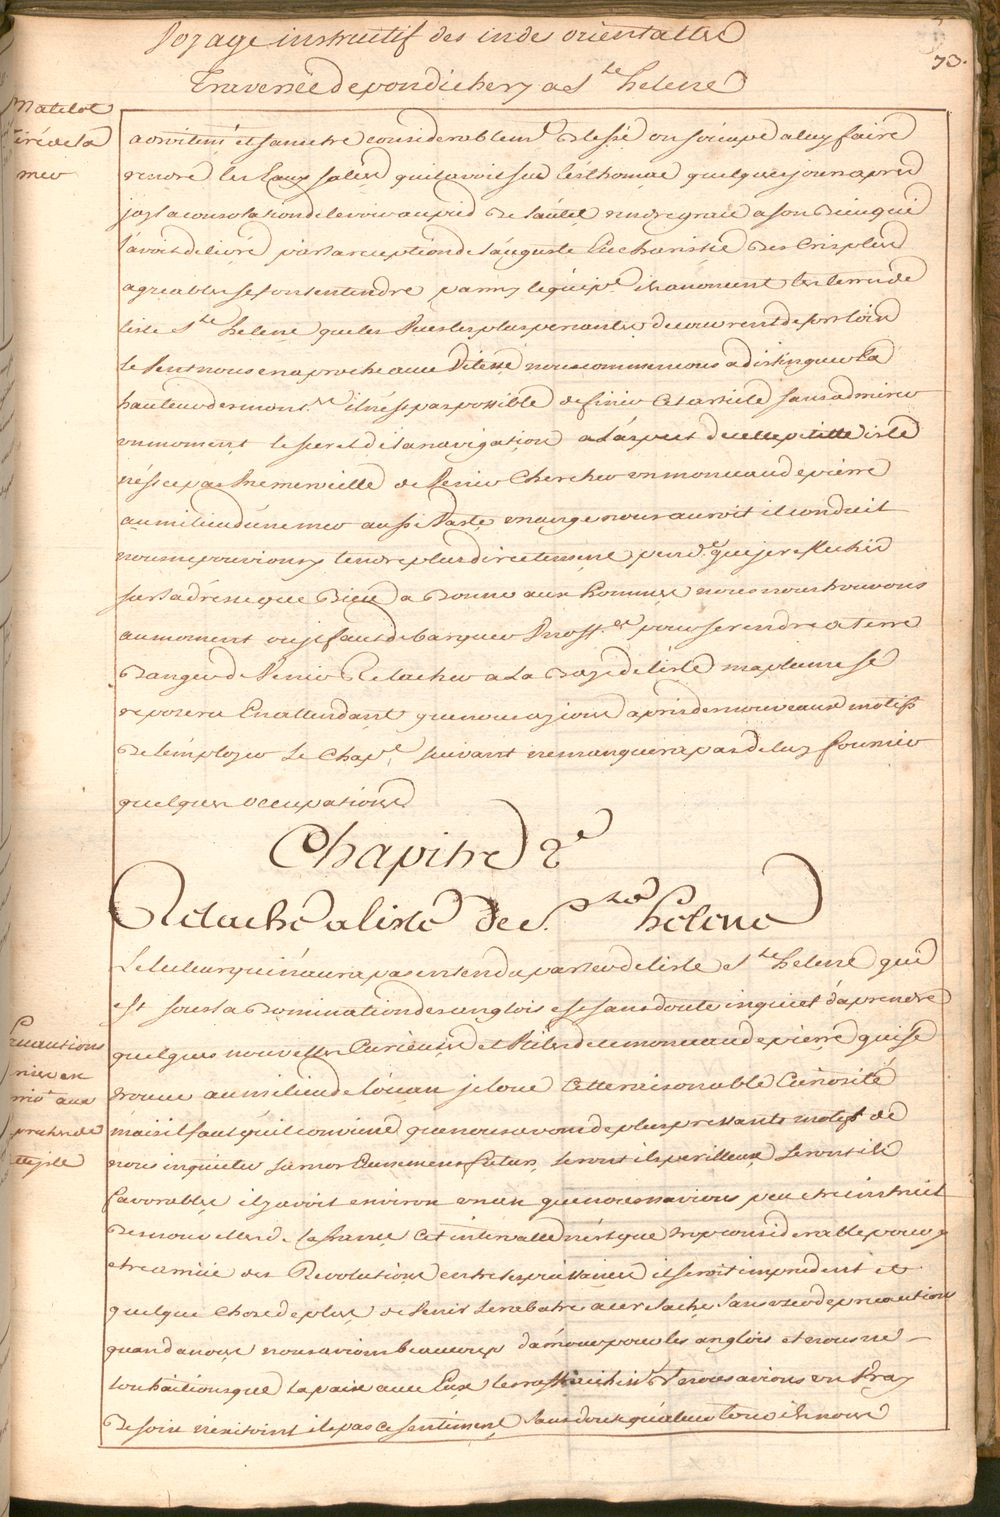 Voyage instructif des inde orientalles
73.
Traversée de pondichery a S.te helene
Matelot
tiré de la
mer
admiteni et sanetre considerablem.t Blessé on s'ocupe a luy faire
rendre les Eaux salées quil avoit sur l'esthomac quelques jours apres
jay la consolation de le voir au pied de l'autel rendre grace a son Dieu qui
l'avoit delivré par la reception de l'auguste Eucharistie des Cris plus
agreables se font entendre parmy l'equip.e ils anoncent les terres de
l'isle S.te helene que les Vues les plus percantes decouvrent de fort loin
le Vent nous en aproche avec Vitesse nous commencons a distinguer la
hauteur des mont.nes il n'est pas possible de finir cet article sans admirer
un moment le secret de la navigation a l'aspect de cette petitte isle
n'est ce pas Une merveille de Venir Chercher un morceau de pierre
au milieu d'une mer aussi Vaste un ange nous auroit il conduit
nous ne pouvions y tendre plus directement pend.t que je reflechis
sur l'adresse que Dieu a Donné aux hommes nous nous trouvons
au moment ou il faut debarquer Un off.er pour se rendre a terre
Danger de Venir Relacher a la Baye de l'isle ma plume se
reposera En attendant que nous ayions apris de nouveaux motifs
de l'employer le Chap.e suivant ne manquera pas de luy fournir
quelques occupations
Chapitre 2.e
Relache a l'isle de S.te helene
Le lecteur qui n'aura pas entendu parler de l'isle S.te helene qui
est sous la Domination des anglois est sans doute inquiet d'aprendre
quelques nouvelles Curieuses et Utiles de ce morceau de pierre qui se
trouve au milieu de l'ocean je loue cette raisonable Curiosité
mais il faut qu'il convienne que nous avons de plus pressants motifs de
nous inquieter sur nos Evenemens futurs seront ils perilleux seront ils
favorables il y avoit environ un an que nous n'avions peu etre instruit
des nouvelles de la france cet intervalle n'est que trop considerable pour y
etre arrivé des Revolutions entre les puissances il seroit imprudent et
quelque chose de plus de Venir se rabatre a ce relache sans user de precautions
quand a nous nous avions beaucoup d'amour pour les anglois et nous ne
souhaitions que la paix avec Eux les rafraichiss.t dt nous avions un Vray
Besoin meritoint ils pas ce sentiment sans doute qu'a leur tour ils nous
Precautions
prises en
aux
aproches de
cette isle